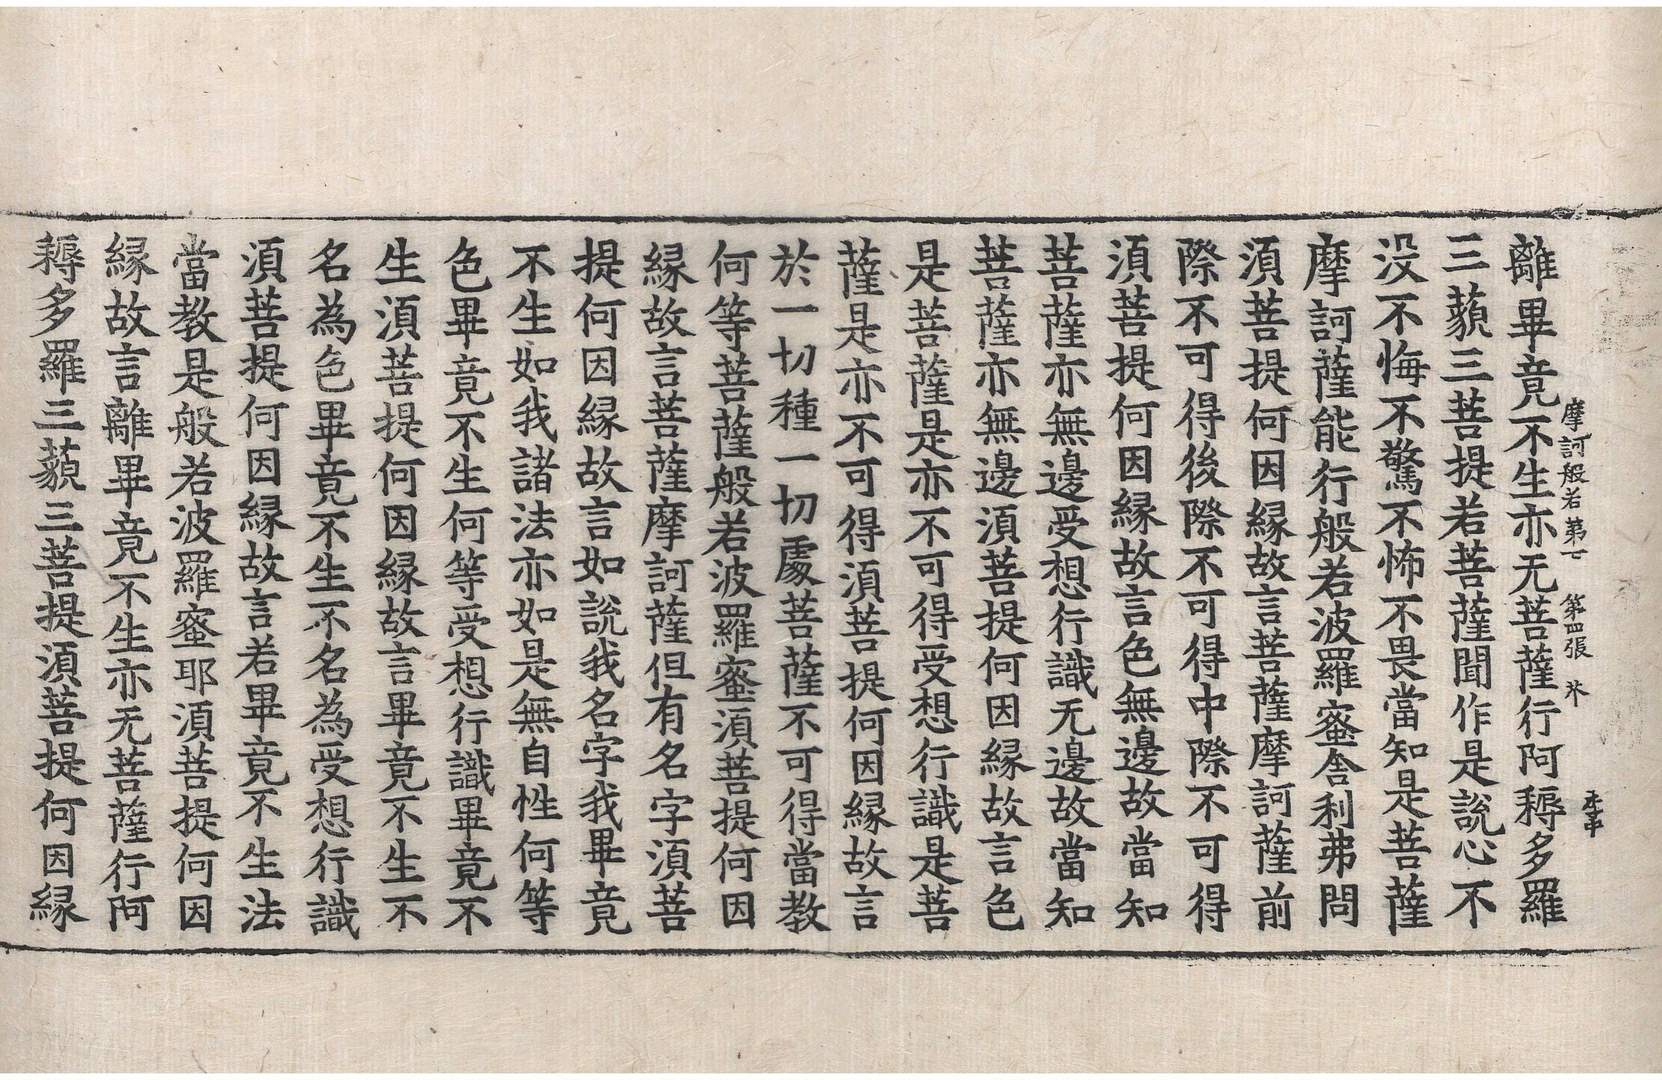 摩訶般若第七 第四張
離畢竟不生亦无菩薩行阿耨多羅
三藐三菩提若菩薩聞作是說心不
没不悔不驚不怖不畏當知是菩薩
摩訶薩能行般若波羅蜜舍利弗問
須菩提何因縁故言菩薩摩訶薩前
際不可得後際不可得中際不可得
須菩提何因縁故言色無邊故當知
菩薩亦無邊受想行識无邊故當知
菩薩亦無邊須菩提何因縁故言色
是菩薩是亦不可得受想行識是菩
薩是亦不可得須菩提何因縁故言
於一切種一切處菩薩不可得當教
何等菩薩般若波羅蜜須菩提何因
縁故言菩薩摩訶薩但有名字須菩
提何因縁故言如說我名字我畢竟
不生如我諸法亦如是無自性何等
色畢竟不生何等受想行識畢竟不
生須菩提何因縁故言畢竟不生不
名為色畢竟不生不名為受想行識
須菩提何因縁故言若畢竟不生法
當教是般若波羅蜜耶須菩提何因
縁故言離畢竟不生亦无菩薩行阿
耨多羅三藐三菩提須菩提何因縁